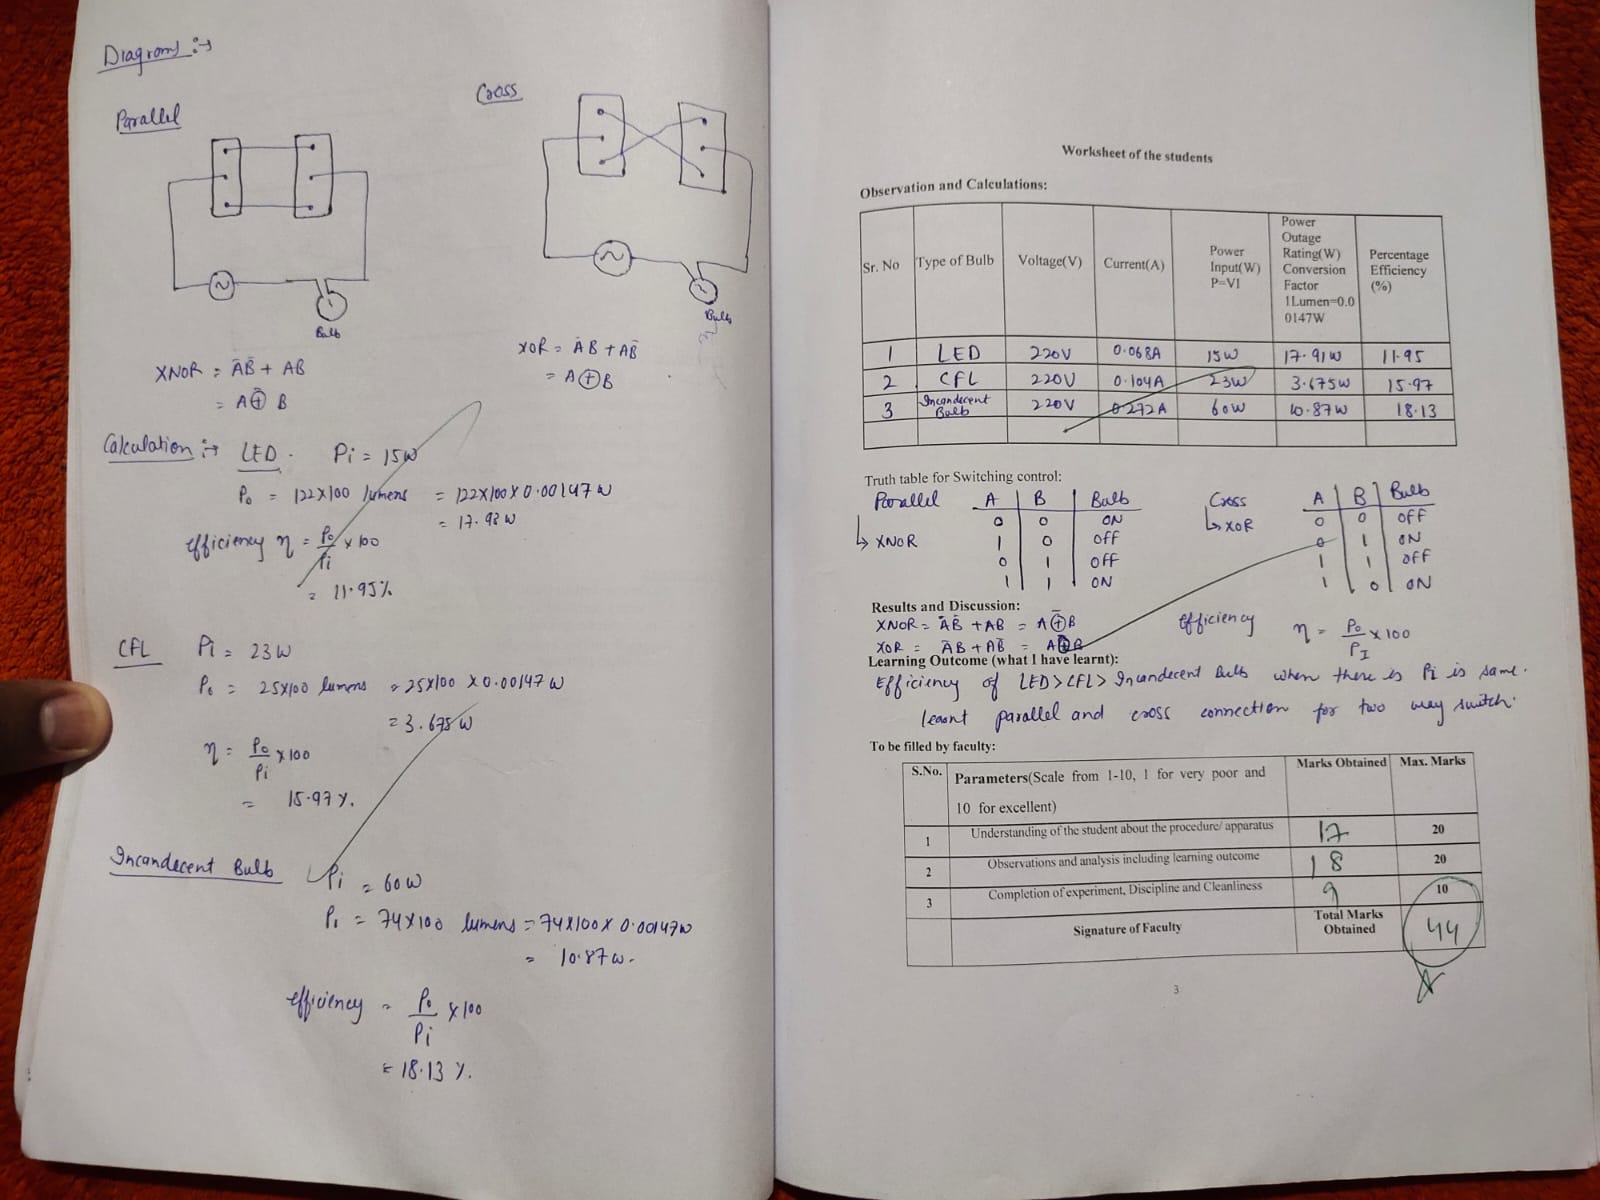 Diagrams :→
Parallel
Cross
Bulb
Bulb
XNOR = ĀB̄ + AB
= A ⊕̄ B
XOR = ĀB + AB̄
= A ⊕ B
Calculation :→ LED . Pi = 15W
Po = 122X100 lumens = 122X100X0.00147W
= 17.93 W
efficiency η = Po/Pi x 100
= 11.95%
CFL Pi = 23W
Po = 25X100 lumens = 25X100 X0.00147W
= 3.675 W
η = Po/Pi X 100
= 15.97 %.
Incandecent Bulb Pi = 60W
Pi = 74X100 lumens = 74X100X0.00147W
= 10.87W.
efficiency = Po/Pi X 100
= 18.13 %.
Worksheet of the students
Observation and Calculations:
Sr. No Type of Bulb Voltage(V) Current(A) Power Input(W) P=VI Power Outage Rating(W) Conversion Factor 1Lumen=0.00147W Percentage Efficiency (%)
1 LED 220V 0.068A 15W 17.91W 11.95
2 CFL 220V 0.104A 23W 3.675W 15.97
3 Incandecent Bulb 220V 0.272A 60W 10.87W 18.13
Truth table for Switching control:
Parallel A B Bulb
↳ XNOR
0 0 ON
1 0 OFF
0 1 OFF
1 1 ON
Cross A B Bulb
↳ XOR
0 0 OFF
0 1 ON
1 1 OFF
1 0 ON
Results and Discussion:
XNOR = ĀB̄ + AB = A ⊕̄ B
XOR = ĀB + AB̄ = A⊕B
efficiency η = Po/PI x 100
Learning Outcome (what I have learnt):
Efficiency of LED > CFL > Incandecent Bulb when there is Pi is same.
learnt parallel and cross connection for two way switch.
To be filled by faculty:
S.No. Parameters(Scale from 1-10, 1 for very poor and 10 for excellent) Marks Obtained Max. Marks
1 Understanding of the student about the procedure/ apparatus 17 20
2 Observations and analysis including learning outcome 18 20
3 Completion of experiment, Discipline and Cleanliness 9 10
Signature of Faculty Total Marks Obtained 44
3